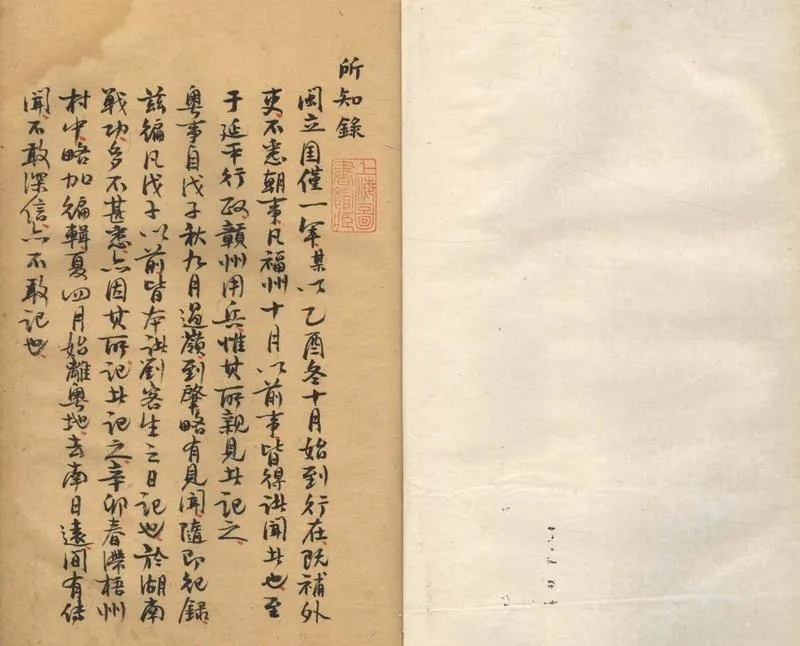 所知錄
閩立国僅一年某以乙酉冬十月始到行在既補外
吏不悉朝事凡福州十月以前事皆得諸聞者也至
于延平行政贛州用兵惟其所親見者記之
粵事自戊子秋九月過嶺到肇略有見聞隨即紀錄
茲編凡戊子以前皆本諸劉客生之日記也於湖南
戰功多不甚悉亦因其所記者記之辛卯春滯梧州
村中略加編輯夏四月始離粵地去南日遠間有傳
聞不敢深信亦不敢記也
上海圖書館藏